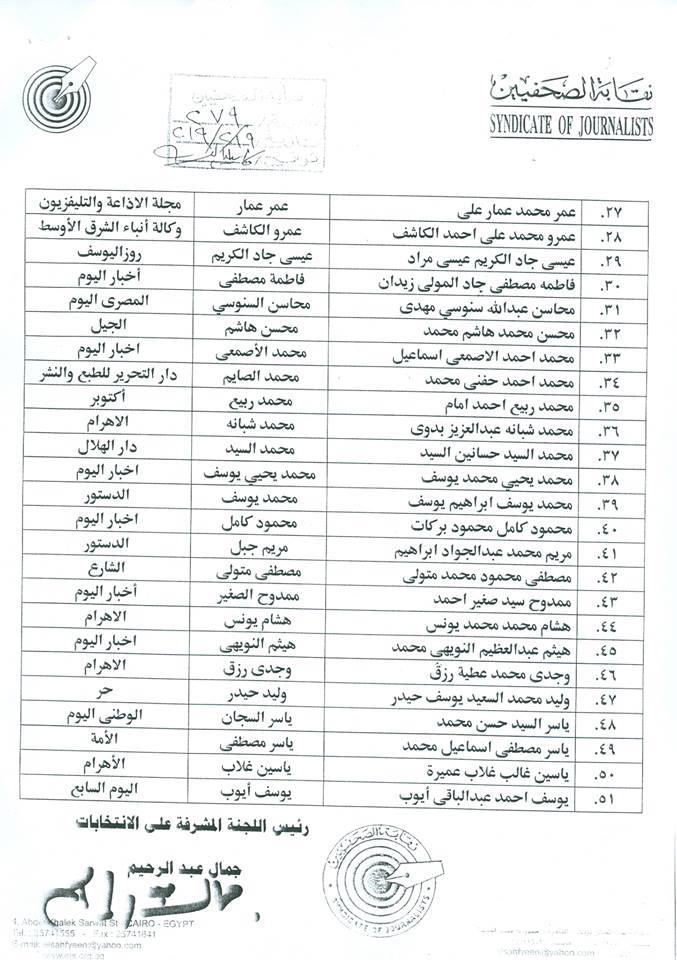 نقابة الصحفيين
SYNDICATE OF JOURNALISTS
نقابة الصحفيين
٢٧٩
٢٧. عمر محمد عمار على عمر عمار مجلة الاذاعة والتليفزيون
٢٨. عمرو محمد على احمد الكاشف عمرو الكاشف وكالة أنباء الشرق الأوسط
٢٩. عيسى جاد الكريم عيسى مراد عيسى جاد الكريم روزاليوسف
٣٠. فاطمه مصطفى جاد المولى زيدان فاطمة مصطفى أخبار اليوم
٣١. محاسن عبدالله سنوسي مهدى محاسن السنوسي المصرى اليوم
٣٢. محسن محمد هاشم محمد محسن هاشم الجيل
٣٣. محمد احمد الاصمعى اسماعيل محمد الأصمعى اخبار اليوم
٣٤. محمد احمد حفنى محمد محمد الصايم دار التحرير للطبع والنشر
٣٥. محمد ربيع احمد امام محمد ربيع أكتوبر
٣٦. محمد شبانه عبدالعزيز بدوى محمد شبانه الاهرام
٣٧. محمد السيد حسانين السيد محمد السيد دار الهلال
٣٨. محمد يحيي محمد يوسف محمد يحيي يوسف اخبار اليوم
٣٩. محمد يوسف ابراهيم يوسف محمد يوسف الدستور
٤٠. محمود كامل محمود بركات محمود كامل اخبار اليوم
٤١. مريم محمد عبدالجواد ابراهيم مريم جبل الدستور
٤٢. مصطفى محمود محمد متولى مصطفى متولى الشارع
٤٣. ممدوح سيد صغير احمد ممدوح الصغير أخبار اليوم
٤٤. هشام محمد محمد يونس هشام يونس الاهرام
٤٥. هيثم عبدالعظيم النويهى محمد هيثم النويهى اخبار اليوم
٤٦. وجدى محمد عطية رزق وجدى رزق الاهرام
٤٧. وليد محمد السعيد يوسف حيدر وليد حيدر حر
٤٨. ياسر السيد حسن محمد ياسر السجان الوطنى اليوم
٤٩. ياسر مصطفى اسماعيل محمد ياسر مصطفى الأمة
٥٠. ياسين غالب غلاب عميرة ياسين غلاب الأهرام
٥١. يوسف احمد عبدالباقى أيوب يوسف أيوب اليوم السابع
رئيس اللجنة المشرفة على الانتخابات
جمال عبد الرحيم
نقابة الصحفيين
SYNDICATE OF JOURNALISTS
4, Abdel Khalek Sarwat St - CAIRO - EGYPT
Tel : 25741555 - Fax : 25741641
E-mail: elsahfyeen@yahoo.com
elsanfyeen@yahoo.com